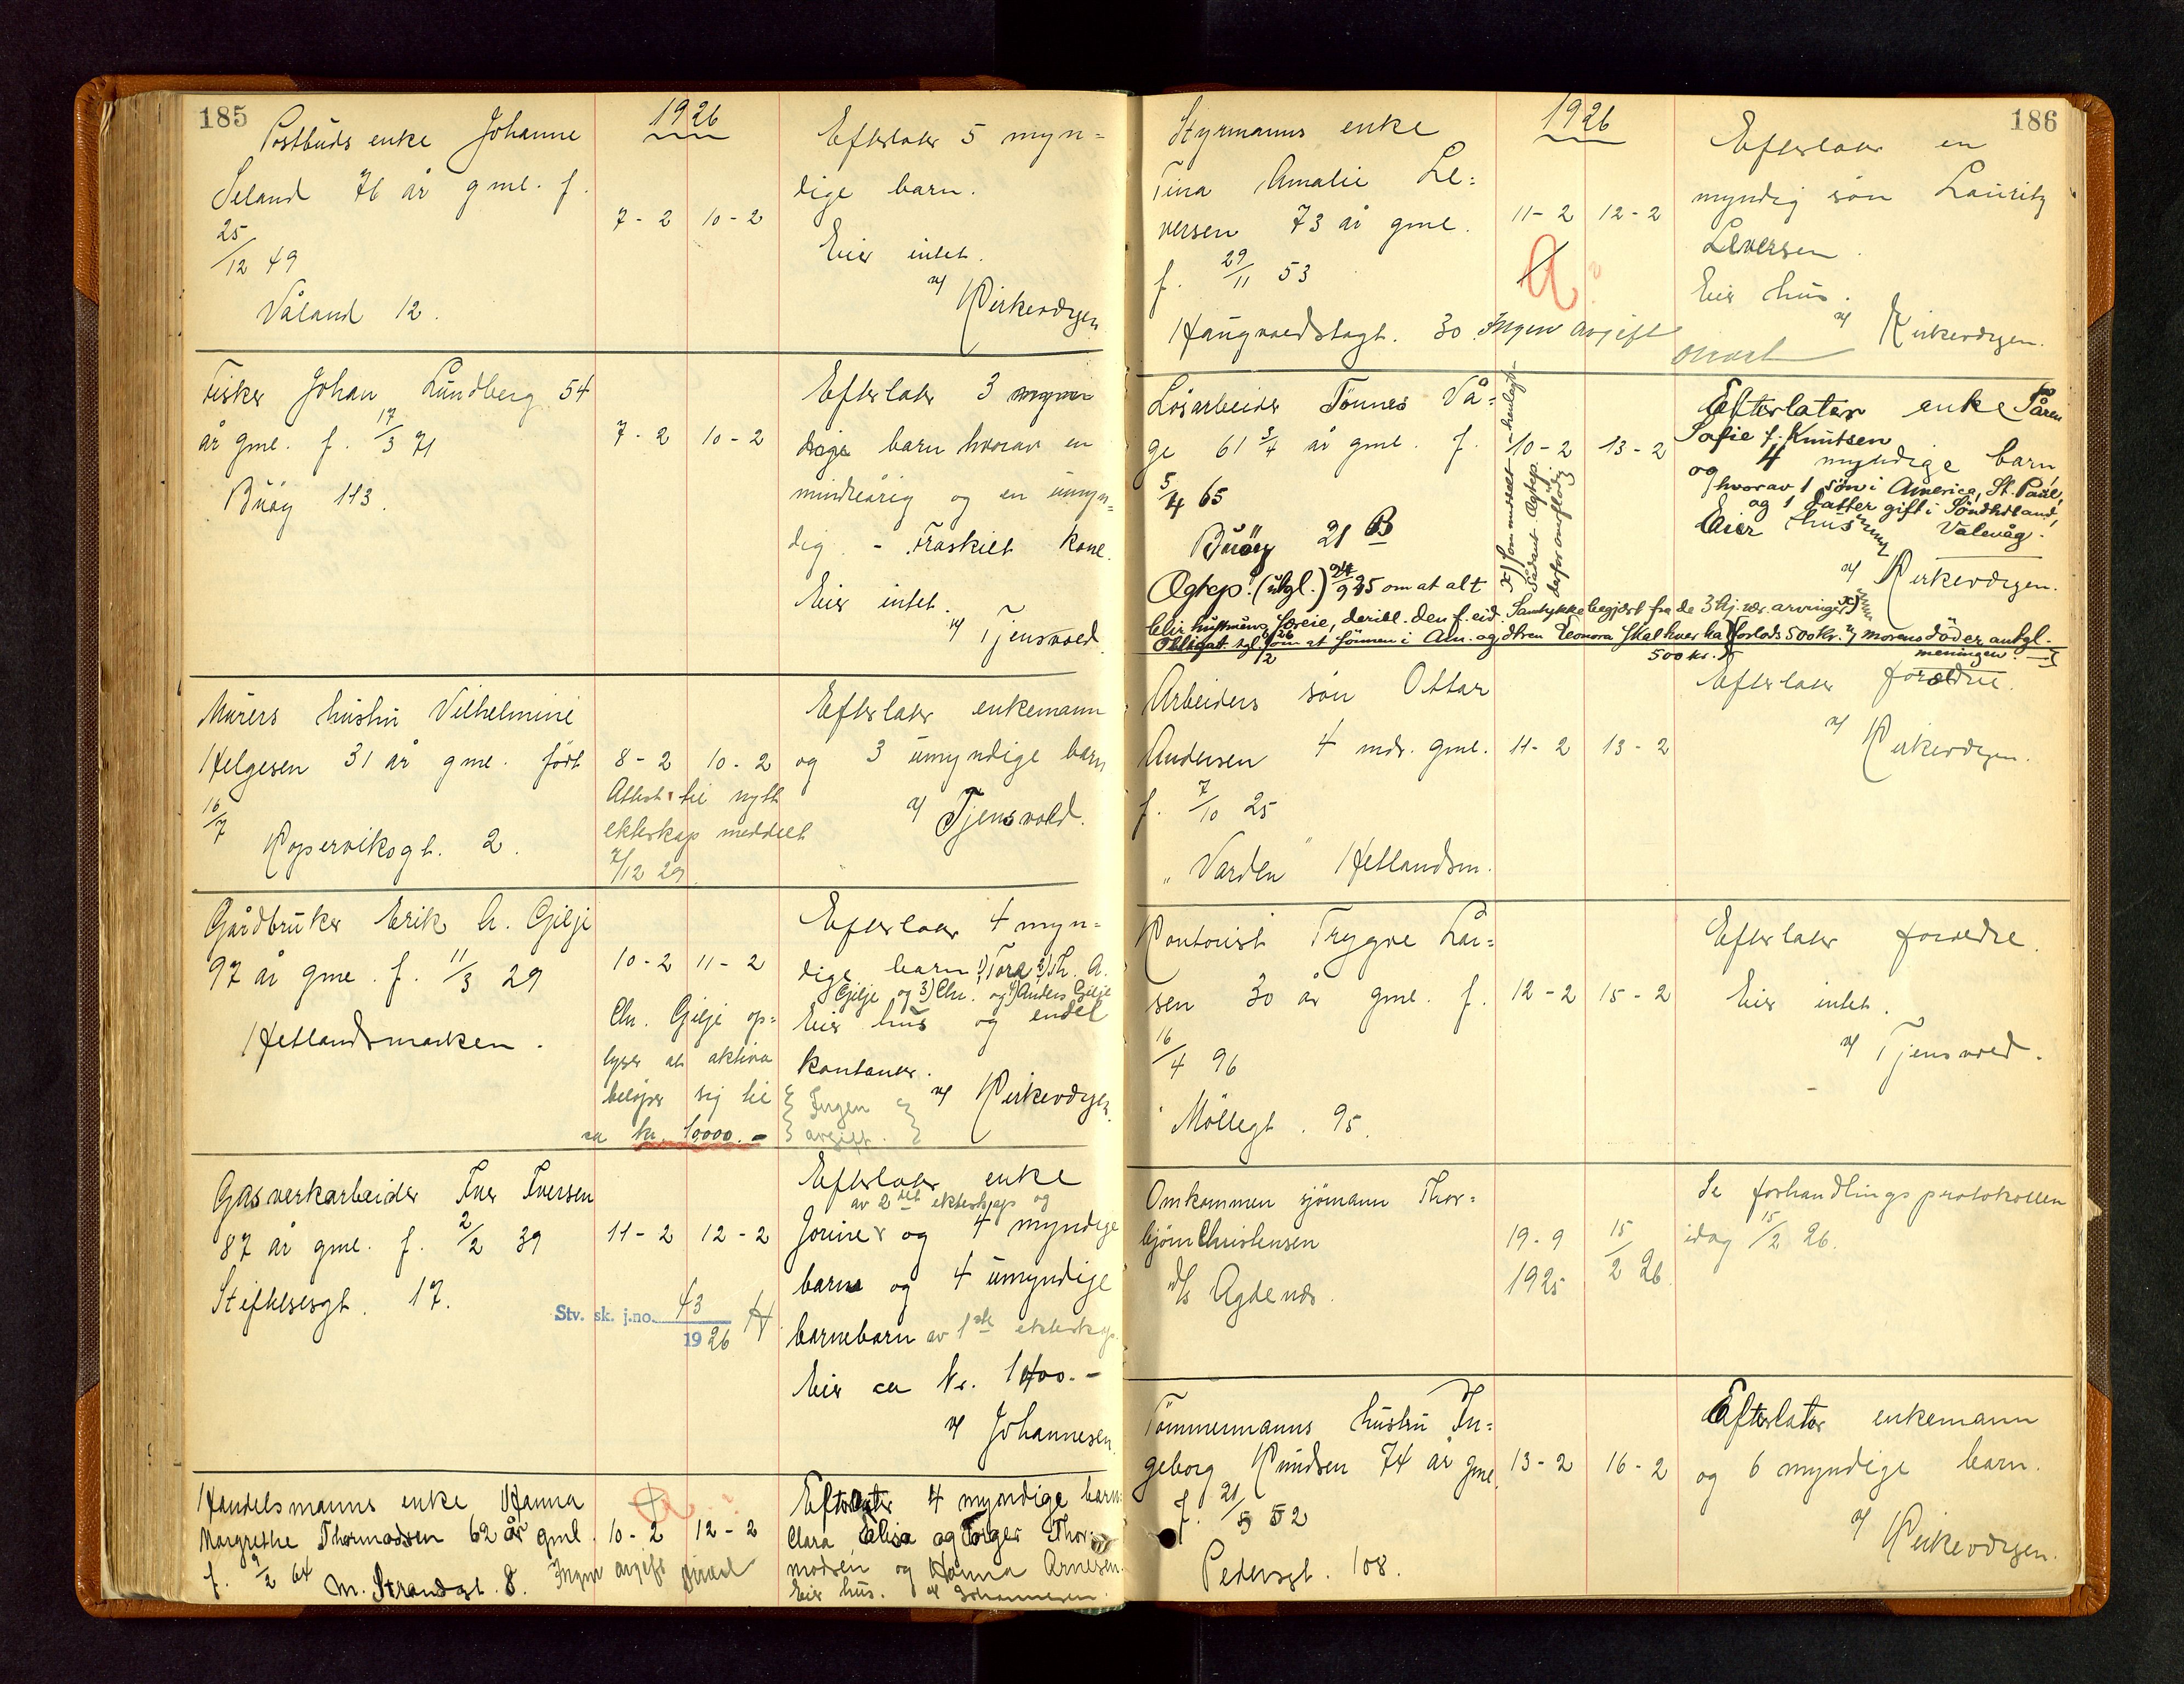 185
1926
Postbuds enke Johanne
Seland 76 år gml. f.
25/12 49
Våland 12.
7-2 10-2
Efterlater 5 myn=
dige barn.
Eier intet.
v/ Kirkevergen
Fisker Johan Lundberg 54
år gml. f. 17/3 71
Buøy 113.
7-2 10-2
Efterlater 3
barn hvorav en
mindreårig og en umyn=
dig. - Fraskilt kone.
Eier intet.
v/ Tjensvold
Murers hustru Vilhelmine
Helgesen 31 år gml. født
16/7
Koperviksgt. 2.
8-2 10-2
Attest til nytt
ekteskap meddelt
7/12 29.
Efterlater enkemann
og 3 umyndige barn
v/ Tjensvold.
Gårdbruker Erik A. Gilje
97 år gml. f. 11/3 29
Hetlandsmarken.
10-2 11-2
Chr. Gilje op=
lyser at aktiva
beløper sig til
ca kr. 10000.-
Efterlater 4 myn=
dige barn 1) Tora 2) Th. A.
Gilje og 3) Chr. og 4) Anders Gilje
Eier hus og endel
kontanter.
v/ Kirkevergen
Ingen
avgift.
Gasverkarbeider Iver Iversen
87 år gml. f. 2/2 39
Steffensesgt. 17.
11-2 12-2
Stv. sk. j.no. 43
1926
Efterlater enke
av 2det ekteskap og
Jorine og 4 myndige
barn og 4 umyndige
barnebarn av 1ste ekteskap.
Eier ca kr. 1400.-
v/ Johannesen
Handelsmanns enke Hanna
Margrethe Thormodsen 62 år gml.
f. 9/2 64 N. Strandgt. 8.
10-2 12-2
Ingen avgift
Efterlater 4 myndige barn:
Clara, Elisa og Torger Thor=
modsen og Hanna Arnesen.
Eier hus. v/ Johannesen
186
1926
Styrmanns enke
Tina Amalie Le=
versen 73 år gml.
f. 29/11 53
Haugvaldstagt. 30. Ingen avgift
11-2 12-2
Efterlater en
myndig søn Lauritz
Leversen.
Eier hus.
v/ Kirkevergen.
Løsarbeider Tønnes Vå=
ge 61 3/4 år gml. f.
5/4 65
Buøy 21 B
10-2 13-2
Efterlater enke Søren
Sofie f. Knutsen
og 4 myndige barn,
hvorav 1 søn i America, St. Paul,
og 1 datter gift i Søndhdland,
Valevåg.
Eier hus
v/ Kirkevergen.
Egtep. (utgl.) 24/9 25 om at alt
blir hustruens særeie, deribl. den f. eid. Samtykke begjært fra de 3 hj. vær. arvinger x)
Obligat. utgl. om at sønnen i Am. og dtren Leonora skal hver ha forlods 500 kr. v/ morens død er antgl.
500 kr.
meningen.
Arbeiders søn Ottar
Andersen 4 mdr. gml.
f. 7/10 25
"Varden" Hetlandsm.
11-2 13-2
Efterlater forældre.
v/ Kirkevergen.
Kontorist Trygve Lar=
sen 30 år gml. f.
16/4 96
Møllegt. 95.
12-2 15-2
Efterlater forældre.
Eier intet.
v/ Tjensvold.
Omkommen sjømann Thor=
bjørn Christensen
d/s Agdenes.
19-9
1925
15/2 26
Se forhandlingsprotokollen
idag 15/2 26.
Tømmermanns hustru In=
geborg Knudsen 74 år gml.
f. 21/5 52
Pedersgt. 108.
13-2 16-2
Efterlater enkemann
og 6 myndige barn.
v/ Kirkevergen.